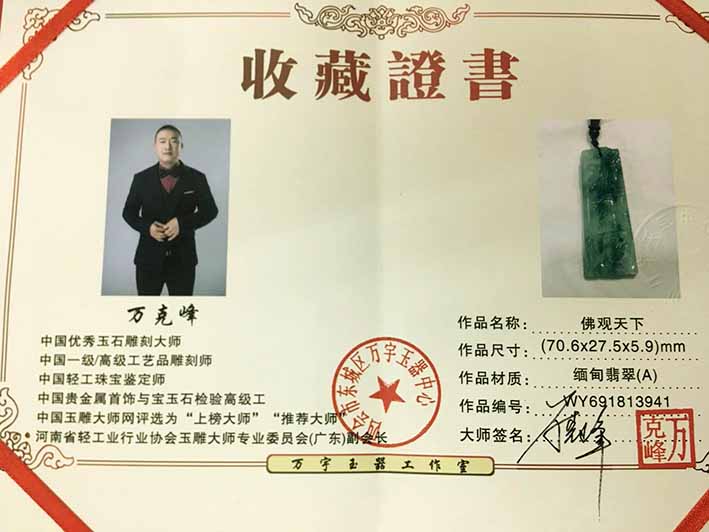 收藏證書
万克峰
中国优秀玉石雕刻大师
中国一级/高级工艺品雕刻师
中国轻工珠宝鉴定师
中国贵金属首饰与宝玉石检验高级工
中国玉雕大师网评选为“上榜大师”“推荐大师”
河南省轻工业行业协会玉雕大师专业委员会(广东)副会长
四会市东城区万宇玉器中心
作品名称: 佛观天下
作品尺寸: (70.6x27.5x5.9)mm
作品材质: 缅甸翡翠(A)
作品编号: WY691813941
大师签名: 万克峰
万克峰
万宇玉器工作室